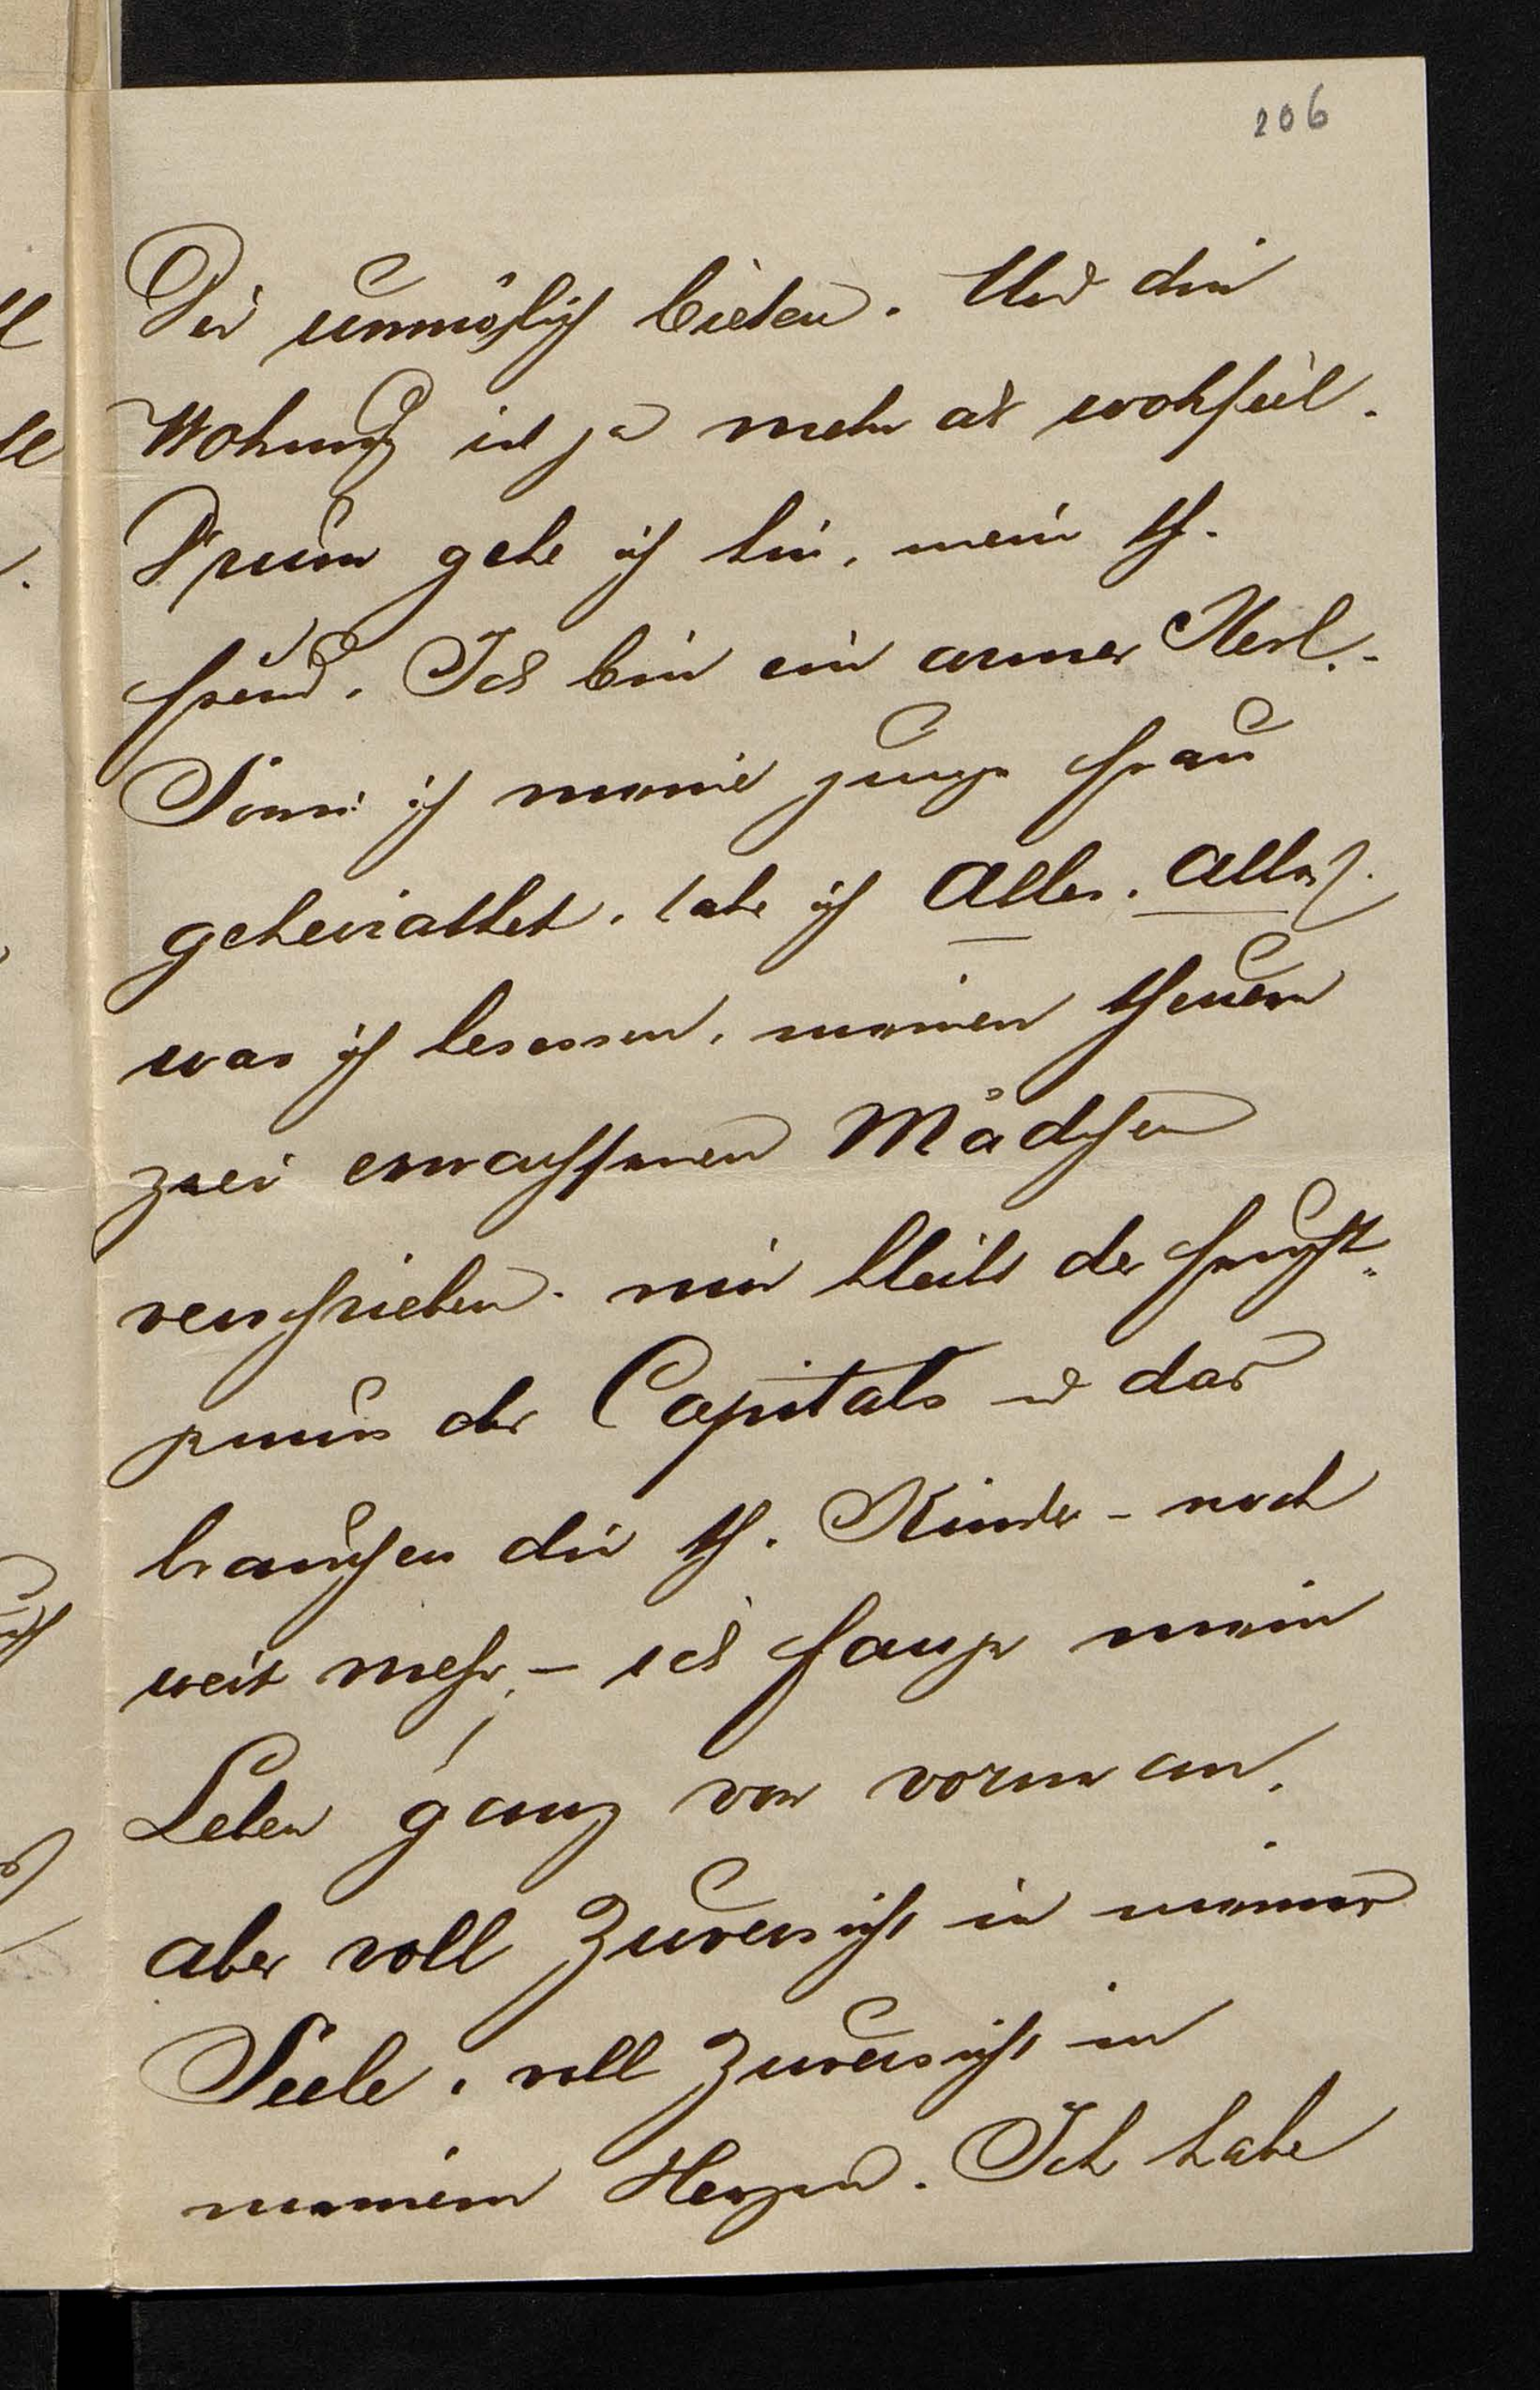 206
Dir unmöglich bieten. Und die
Wohnung ist ja mehr als wohlfeil.
Drum gehe ich hin, mein th.
Freund. Ich bin ein armer Kerl.-
Seit ich meine junge Frau
geheirathet, habe ich Alles, Alles,
was ich besessen, meinen theuern
zwei erwachsenen Mädchen
verschrieben. mir bleibt der Frucht-
genuss des Capitals u das
brauchen die th. Kinder - noch
weit mehr, - ich fange mein
Leben ganz von vorne an,
aber voll Zuversicht in meiner
Seele, voll Zuversicht in
meinem Herzen. Ich habe